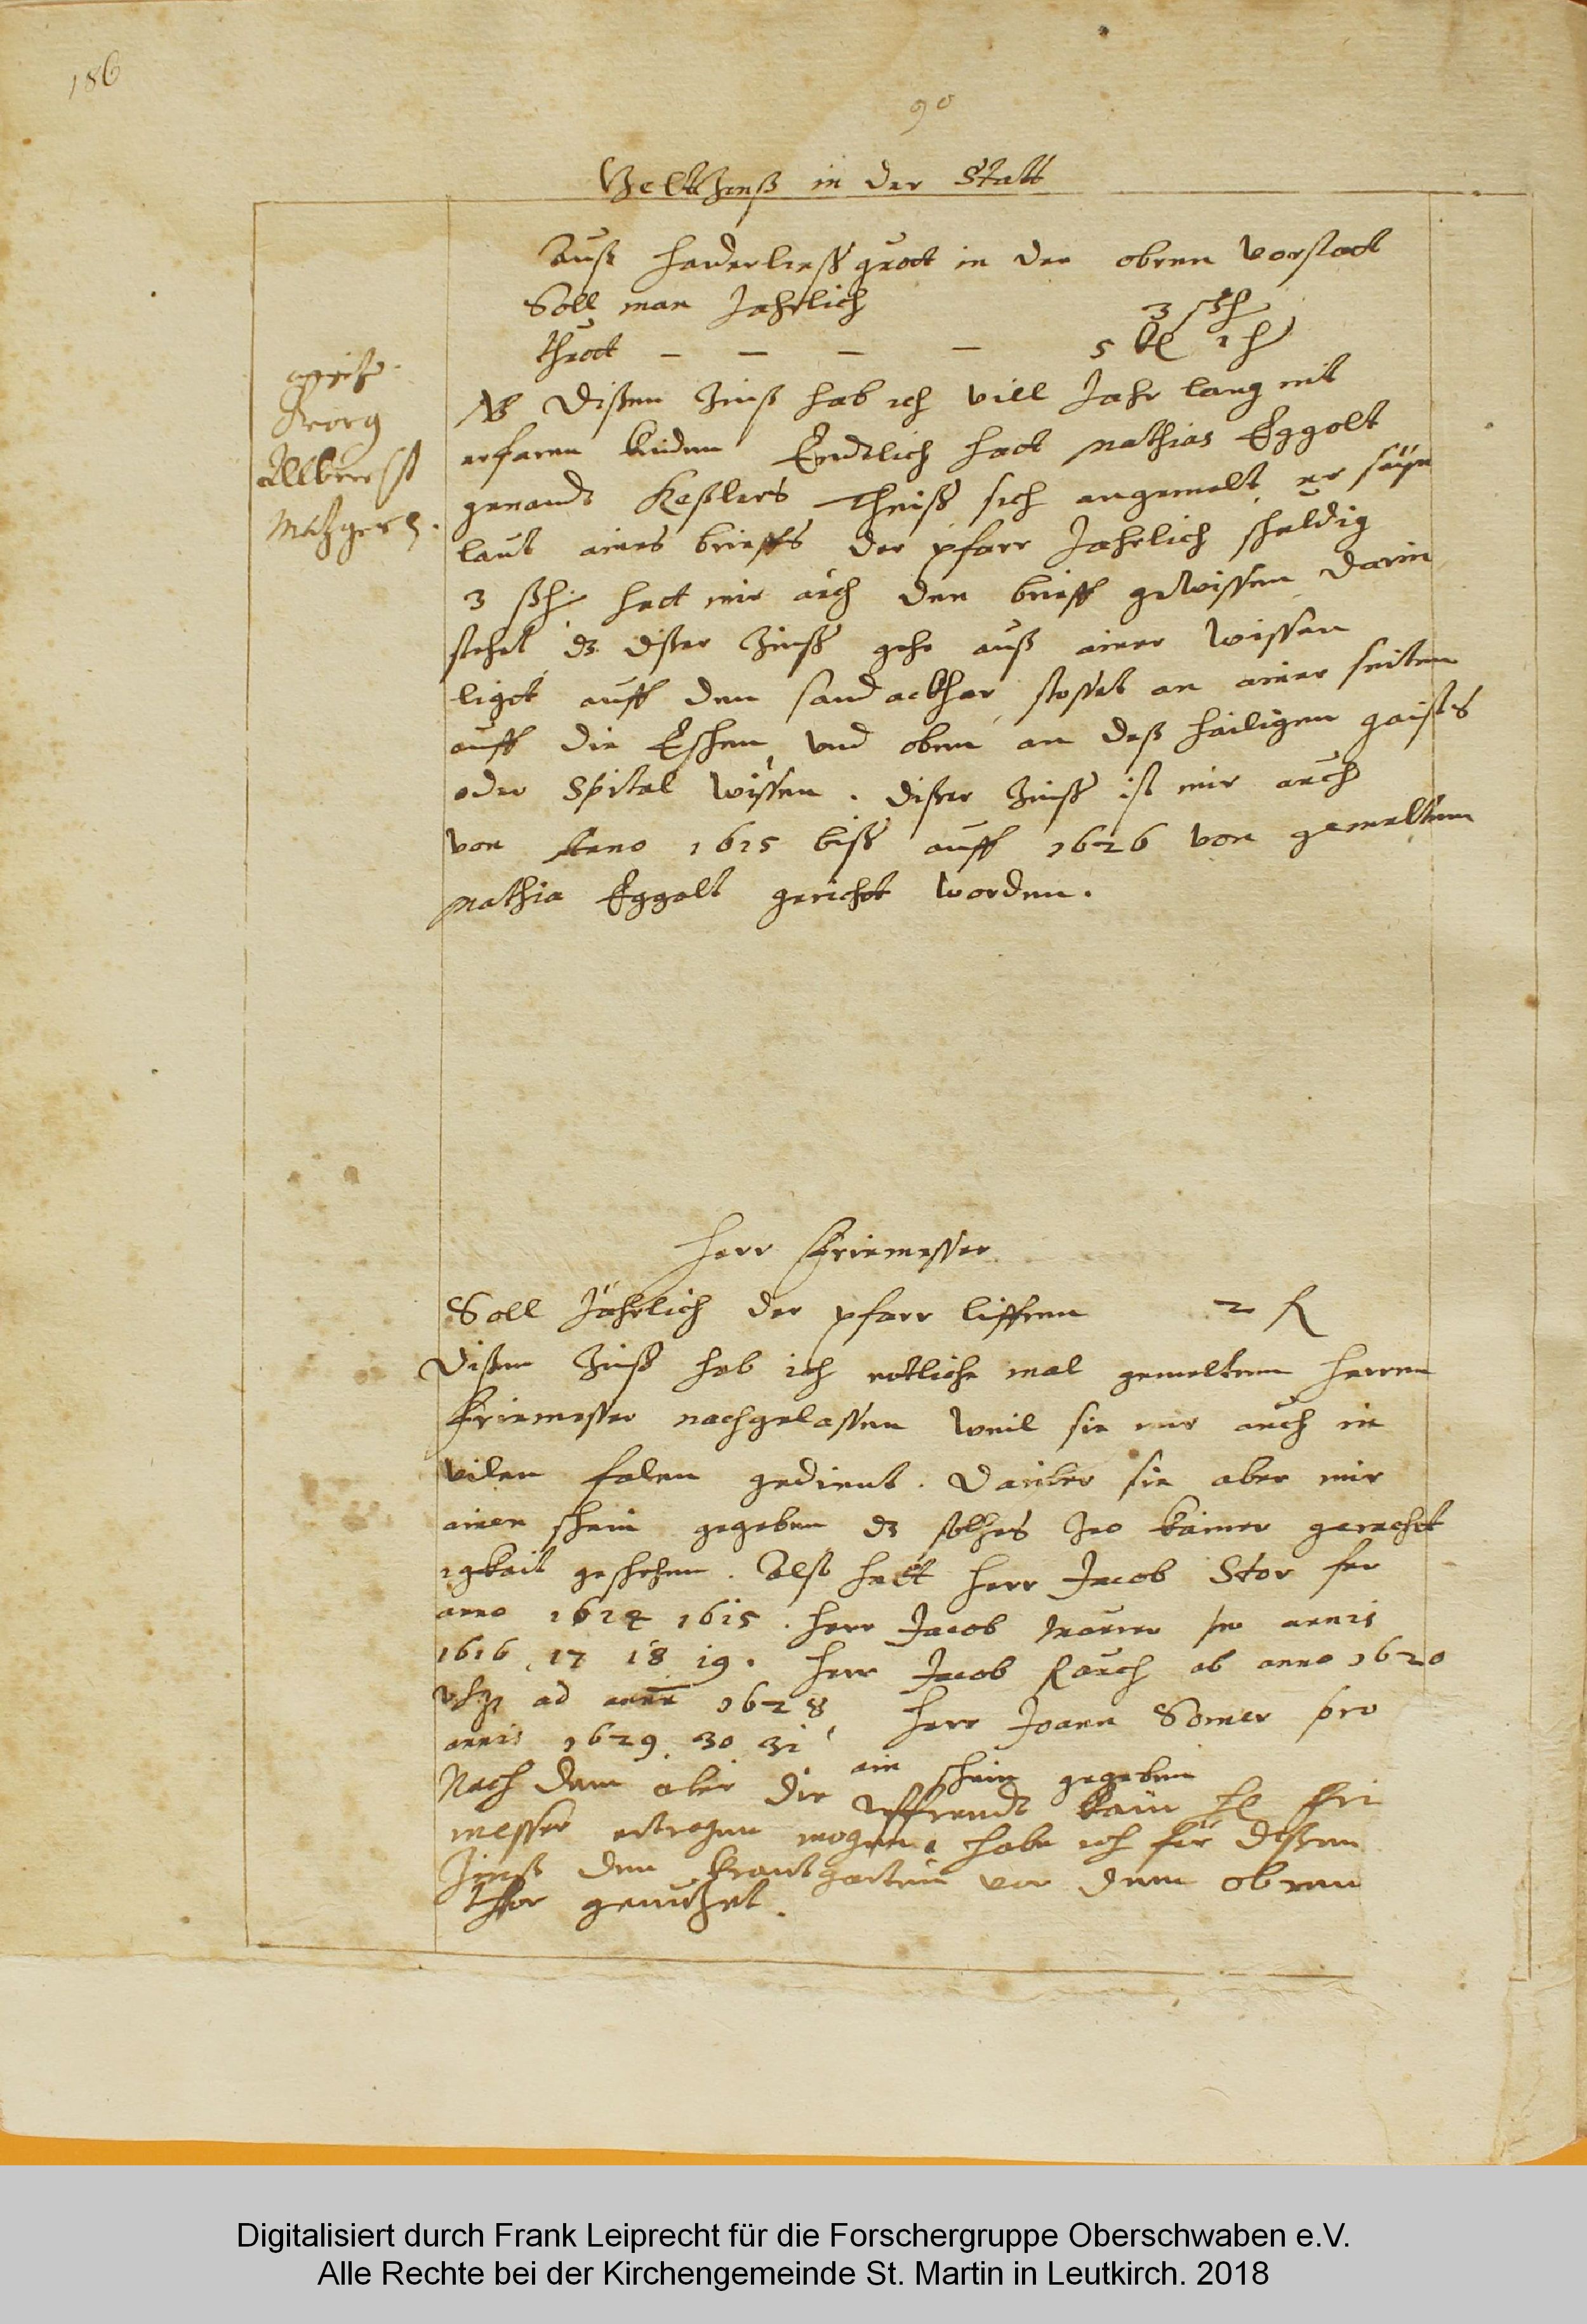 186
90
Geltzinß in der Statt
Auß Haderliess guott in der obren vorstatt
Soll man Jahrlich 3 ßh
thuott — — — — 5 1 h
Georg
Metzger
NB Dißen Zinß hab ich vill Jahr lang nit
erfaren kinden Endtlich hatt Mathias Eggolt
genandt Keßlers Theiß sich angemelt er seÿe
laut aines brieffs der pfarr Jahrlich schuldig
3 ßh. hatt mir auch den brieff gewissen darin
stehet dz dißer Zinß gehe auß ainer wissen
ligt auff dem sandackher, stosset an ainer seiten
auff die Eschen, und oben an deß hailigen gaists
oder Spital wissen. dißer Zinß ist mir auch
von Anno 1615 biß auff 1626 von gemeltem
Mathia Eggolt gericht worden.
Herr Friemesser
Soll Jährlich der pfarr liffren 2 fl
Dißen Zinß hab ich ettliche mal gemeltem Herren
Friemesser nachgelassen weil sie mir auch in
vilen falen gedient. Dariber sie aber mir
ainen schein gegeben dz solches Ino kainer gerecht
igkait geschehen. Alß hatt Herr Jacob Stor fer
anno 1614 1615. Herr Jacob Maurer pro annis
1616, 17 18 19. Herr Jacob Rauch ab anno 1620
usq ad annu 1628, Herr Joann Somer pro
annis 1629 30 31
ain schein gegeben
Nach dem aber die kain Fri
messer ertragen mogen, habe ich für dißen
Zinß den Krautgarten vor dem obren
thor genutzet.
Digitalisiert durch Frank Leiprecht für die Forschergruppe Oberschwaben e.V.
Alle Rechte bei der Kirchengemeinde St. Martin in Leutkirch. 2018